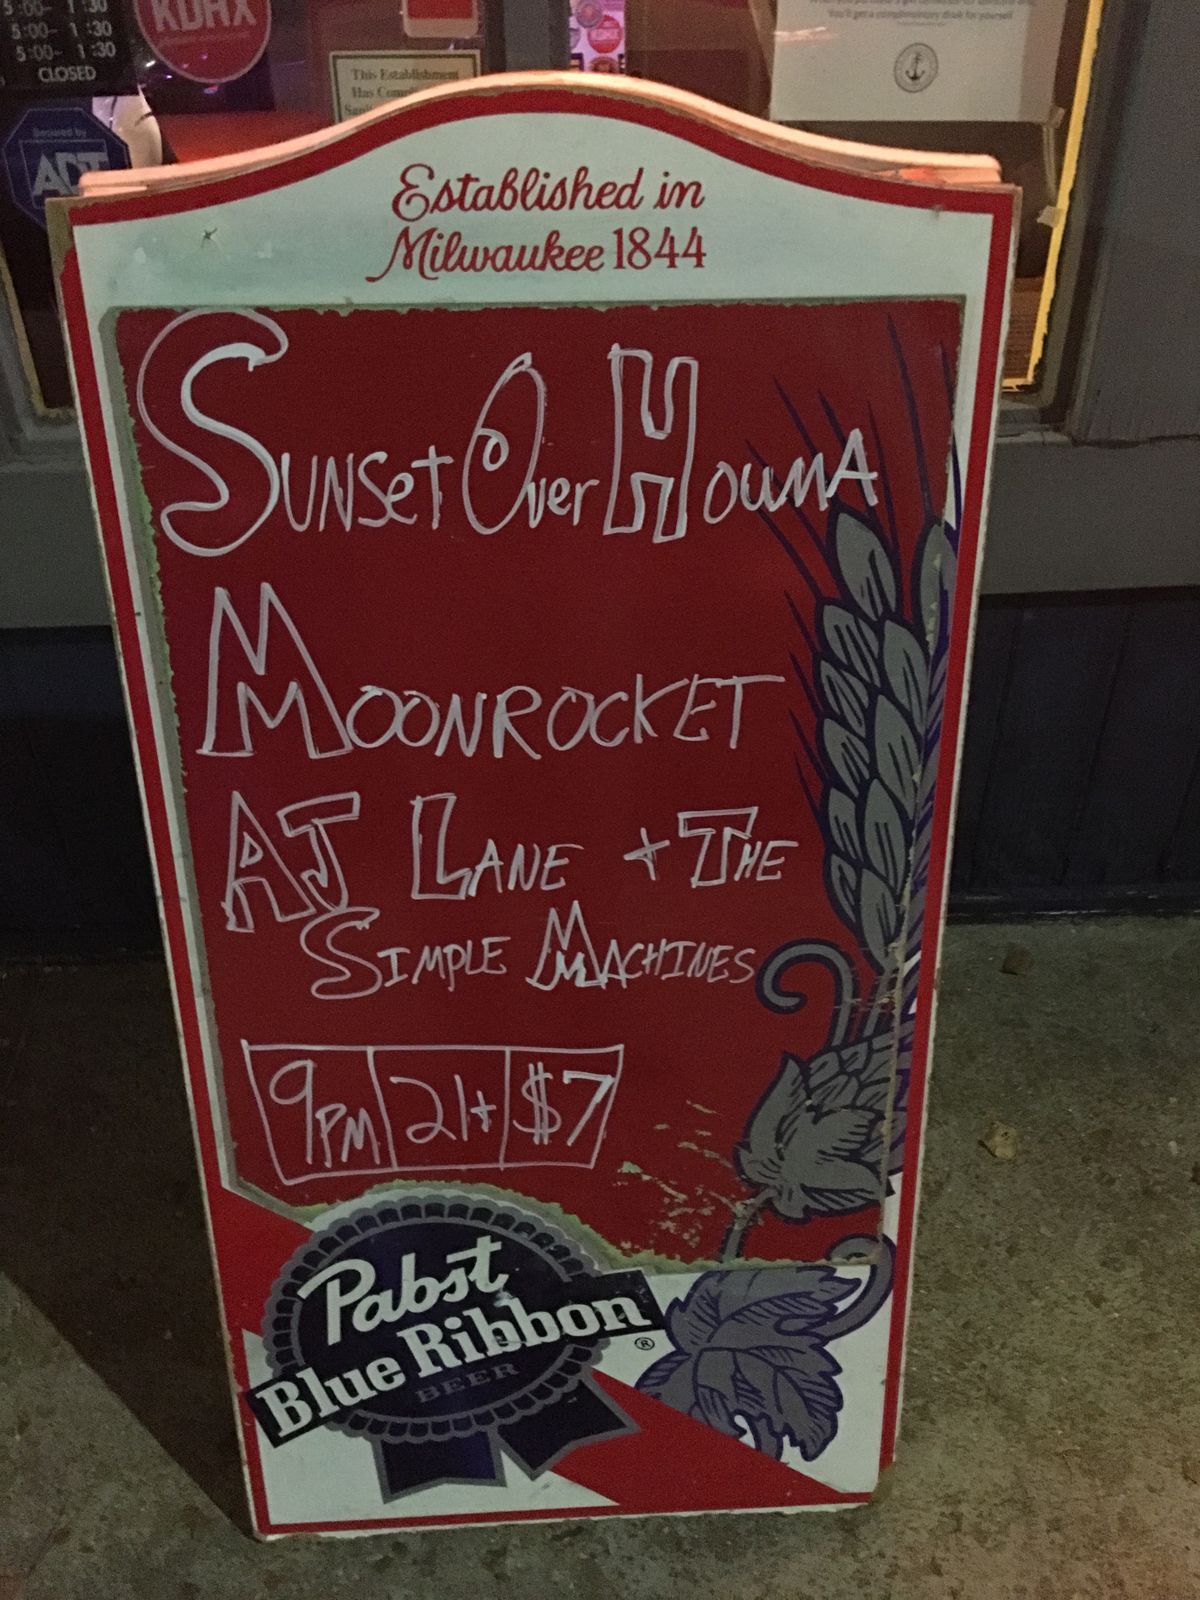 5:00- 1:30
5:00- 1:30
5:00- 1:30
CLOSED
KDHX
KDHX
This Establishment
You'll get a complimentary drink for yourself
Secured by
ADT
Established in
Milwaukee 1844
SUNSET OVER HOUMA
MOONROCKET
AJ LANE + THE
SIMPLE MACHINES
9PM 21+ $7
Pabst
Blue Ribbon®
BEER